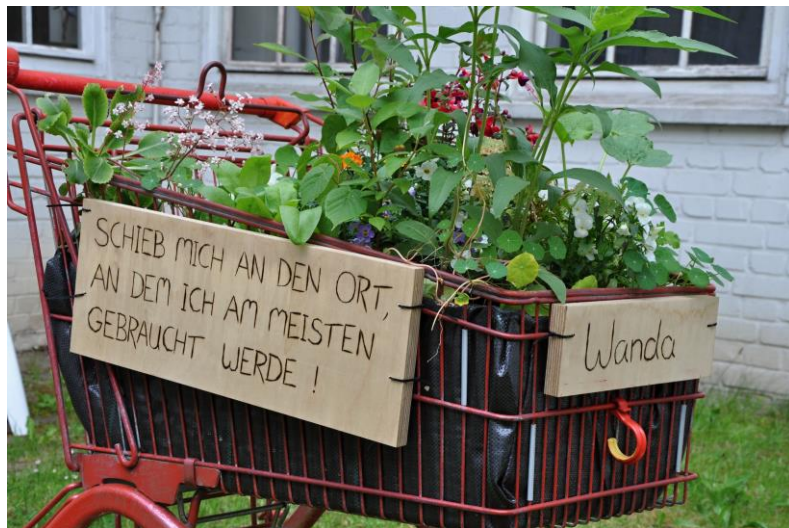 SCHIEB MICH AN DEN ORT,
AN DEM ICH AM MEISTEN
GEBRAUCHT WERDE !
Wanda